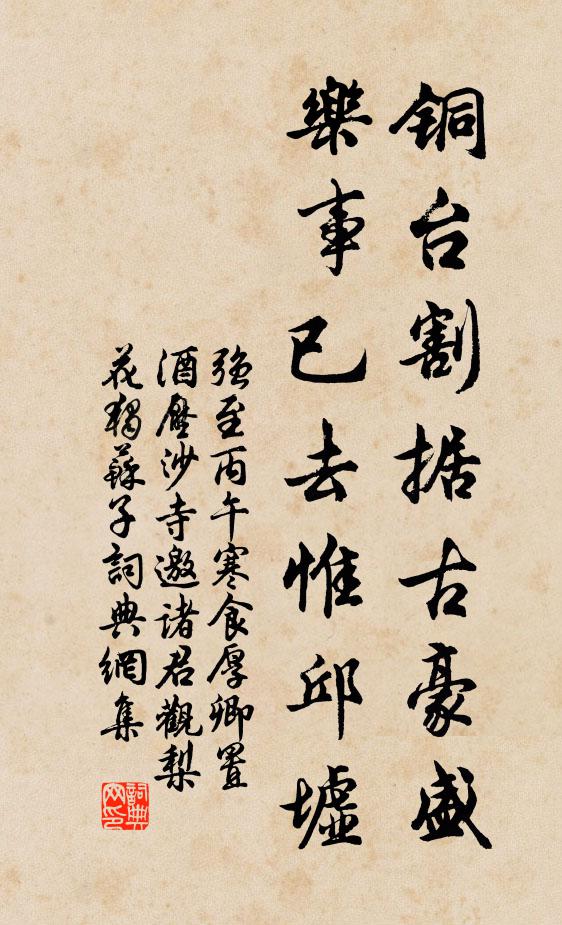 銅台割据古豪盛
樂事已去惟邱墟
強至丙午寒食厚卿置
酒壓沙寺邀諸君觀梨
花獨蘇子詞典網集
詞典网印